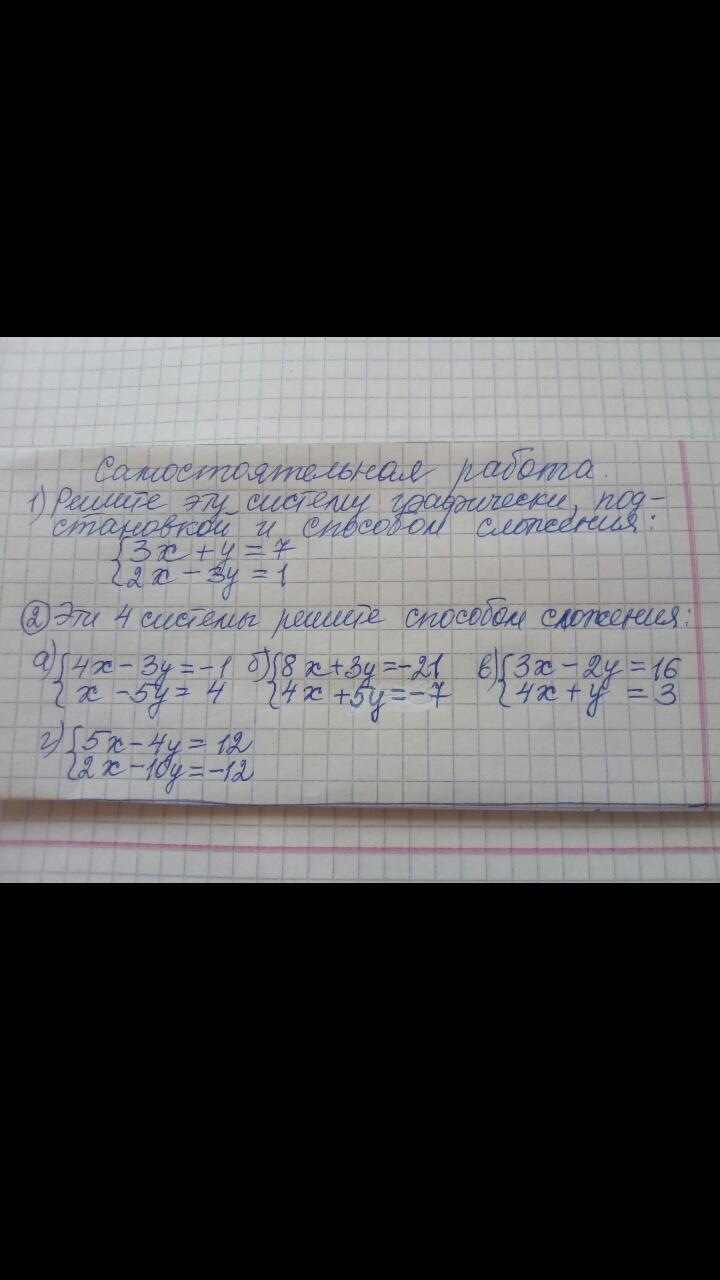 Самостоятельная работа.
1) Решите эту систему графически, под-
становкой и способом сложения:
{3x + y = 7
{2x - 3y = 1
2) Эти 4 системы решите способом сложения:
а) {4x - 3y = -1 б) {8x + 3y = -21 в) {3x - 2y = 16
{x - 5y = 4 {4x + 5y = -7 {4x + y = 3
г) {5x - 4y = 12
{2x - 10y = -12